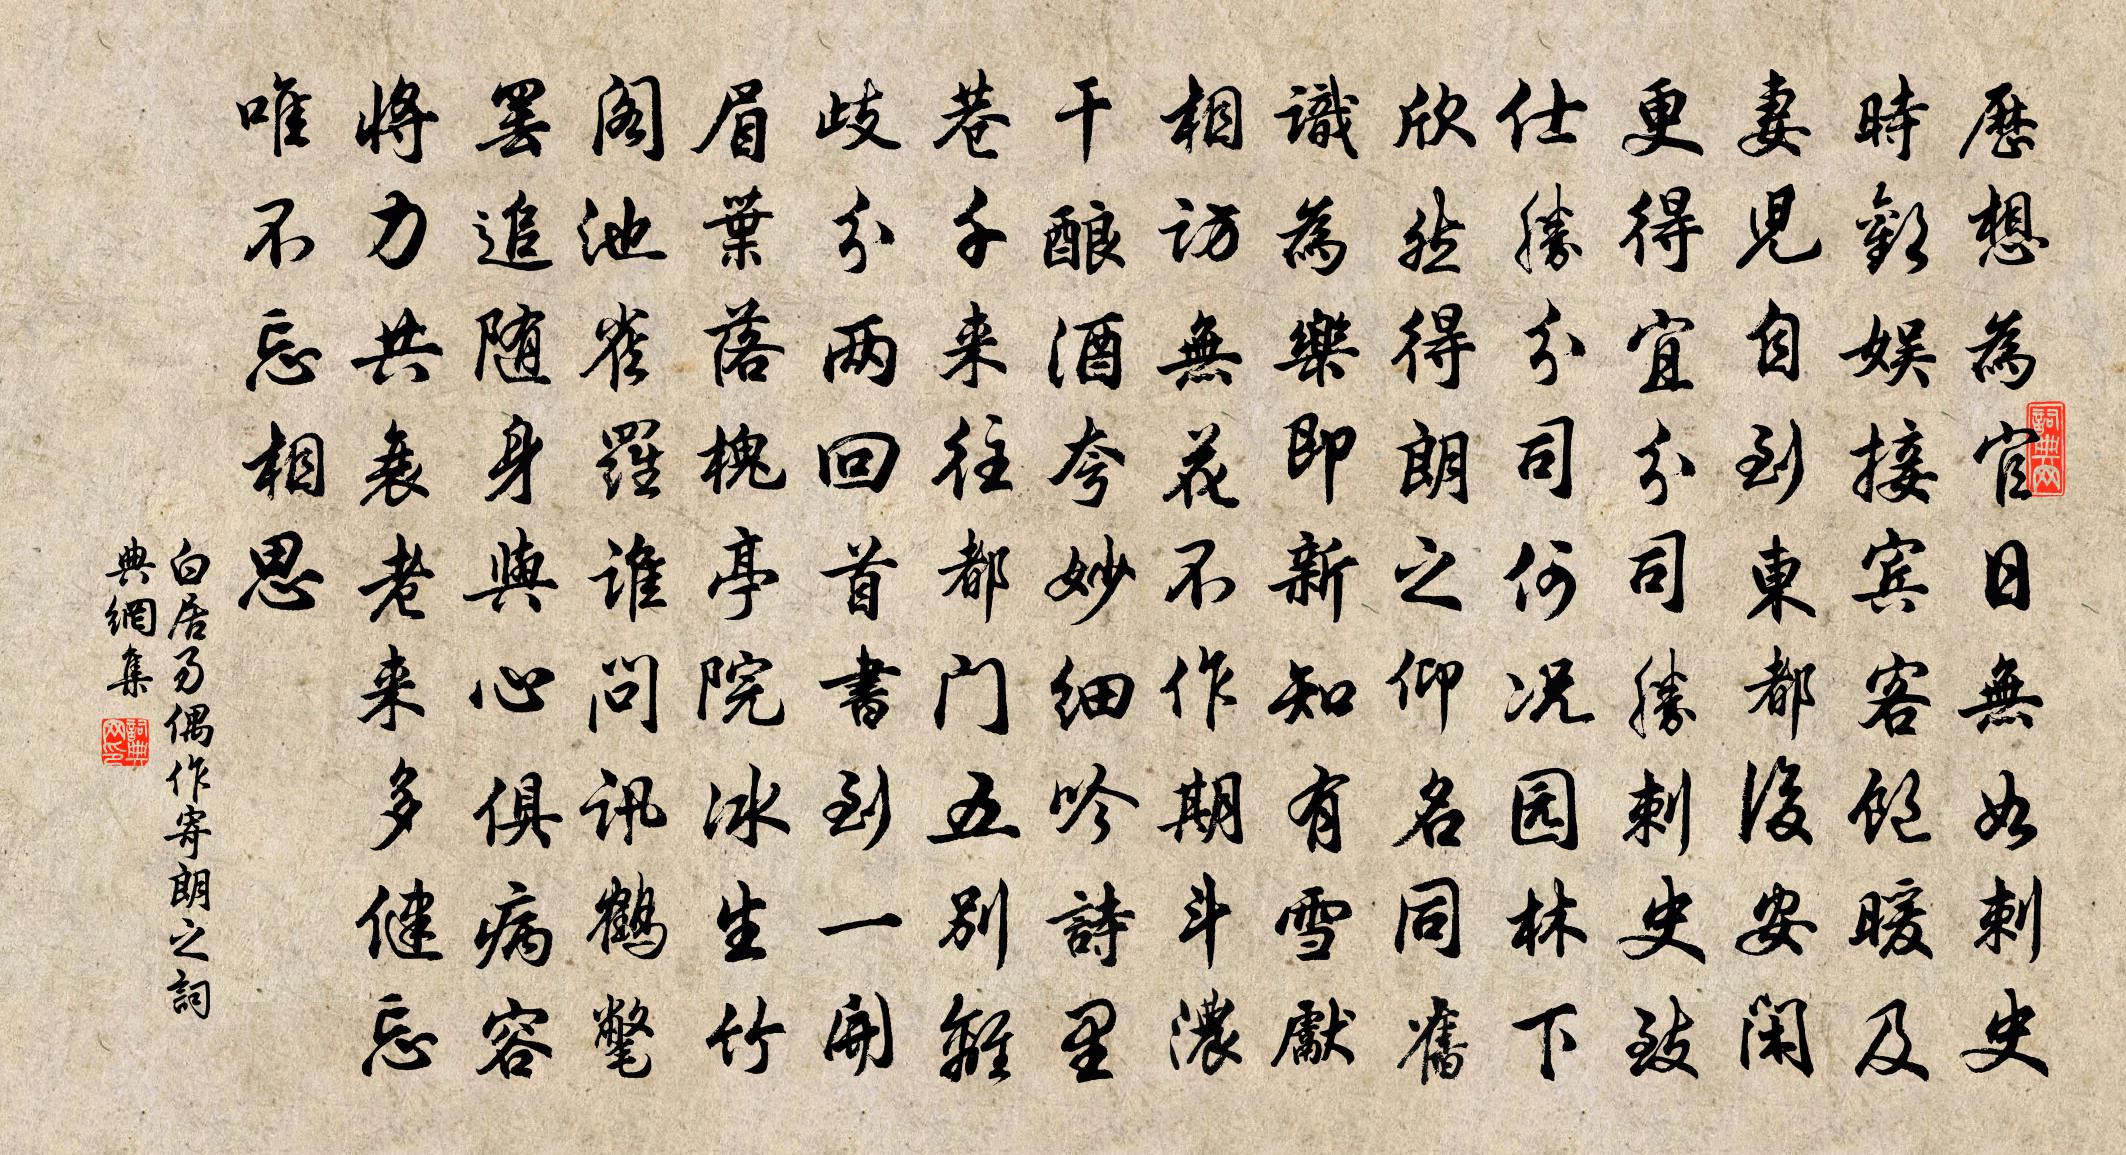 歷想為官日無如刺史
時歡娛接賓客飽暖及
妻兒自到東都後安閑
更得宜分司勝刺史致
仕勝分司何況园林下
欣然得朗之仰名同舊
識為樂即新知有雪獻
相訪無花不作期斗濃
干酿酒夸妙細吟詩里
巷千来往都门五別離
歧分兩回首書到一開
眉葉落槐亭院冰生竹
阁池雀羅誰问訊鶴氅
罢追随身與心俱病容
将力共衰老来多健忘
唯不忘相思
白居易偶作寄朗之詞
典網集
詞典网
詞典网印